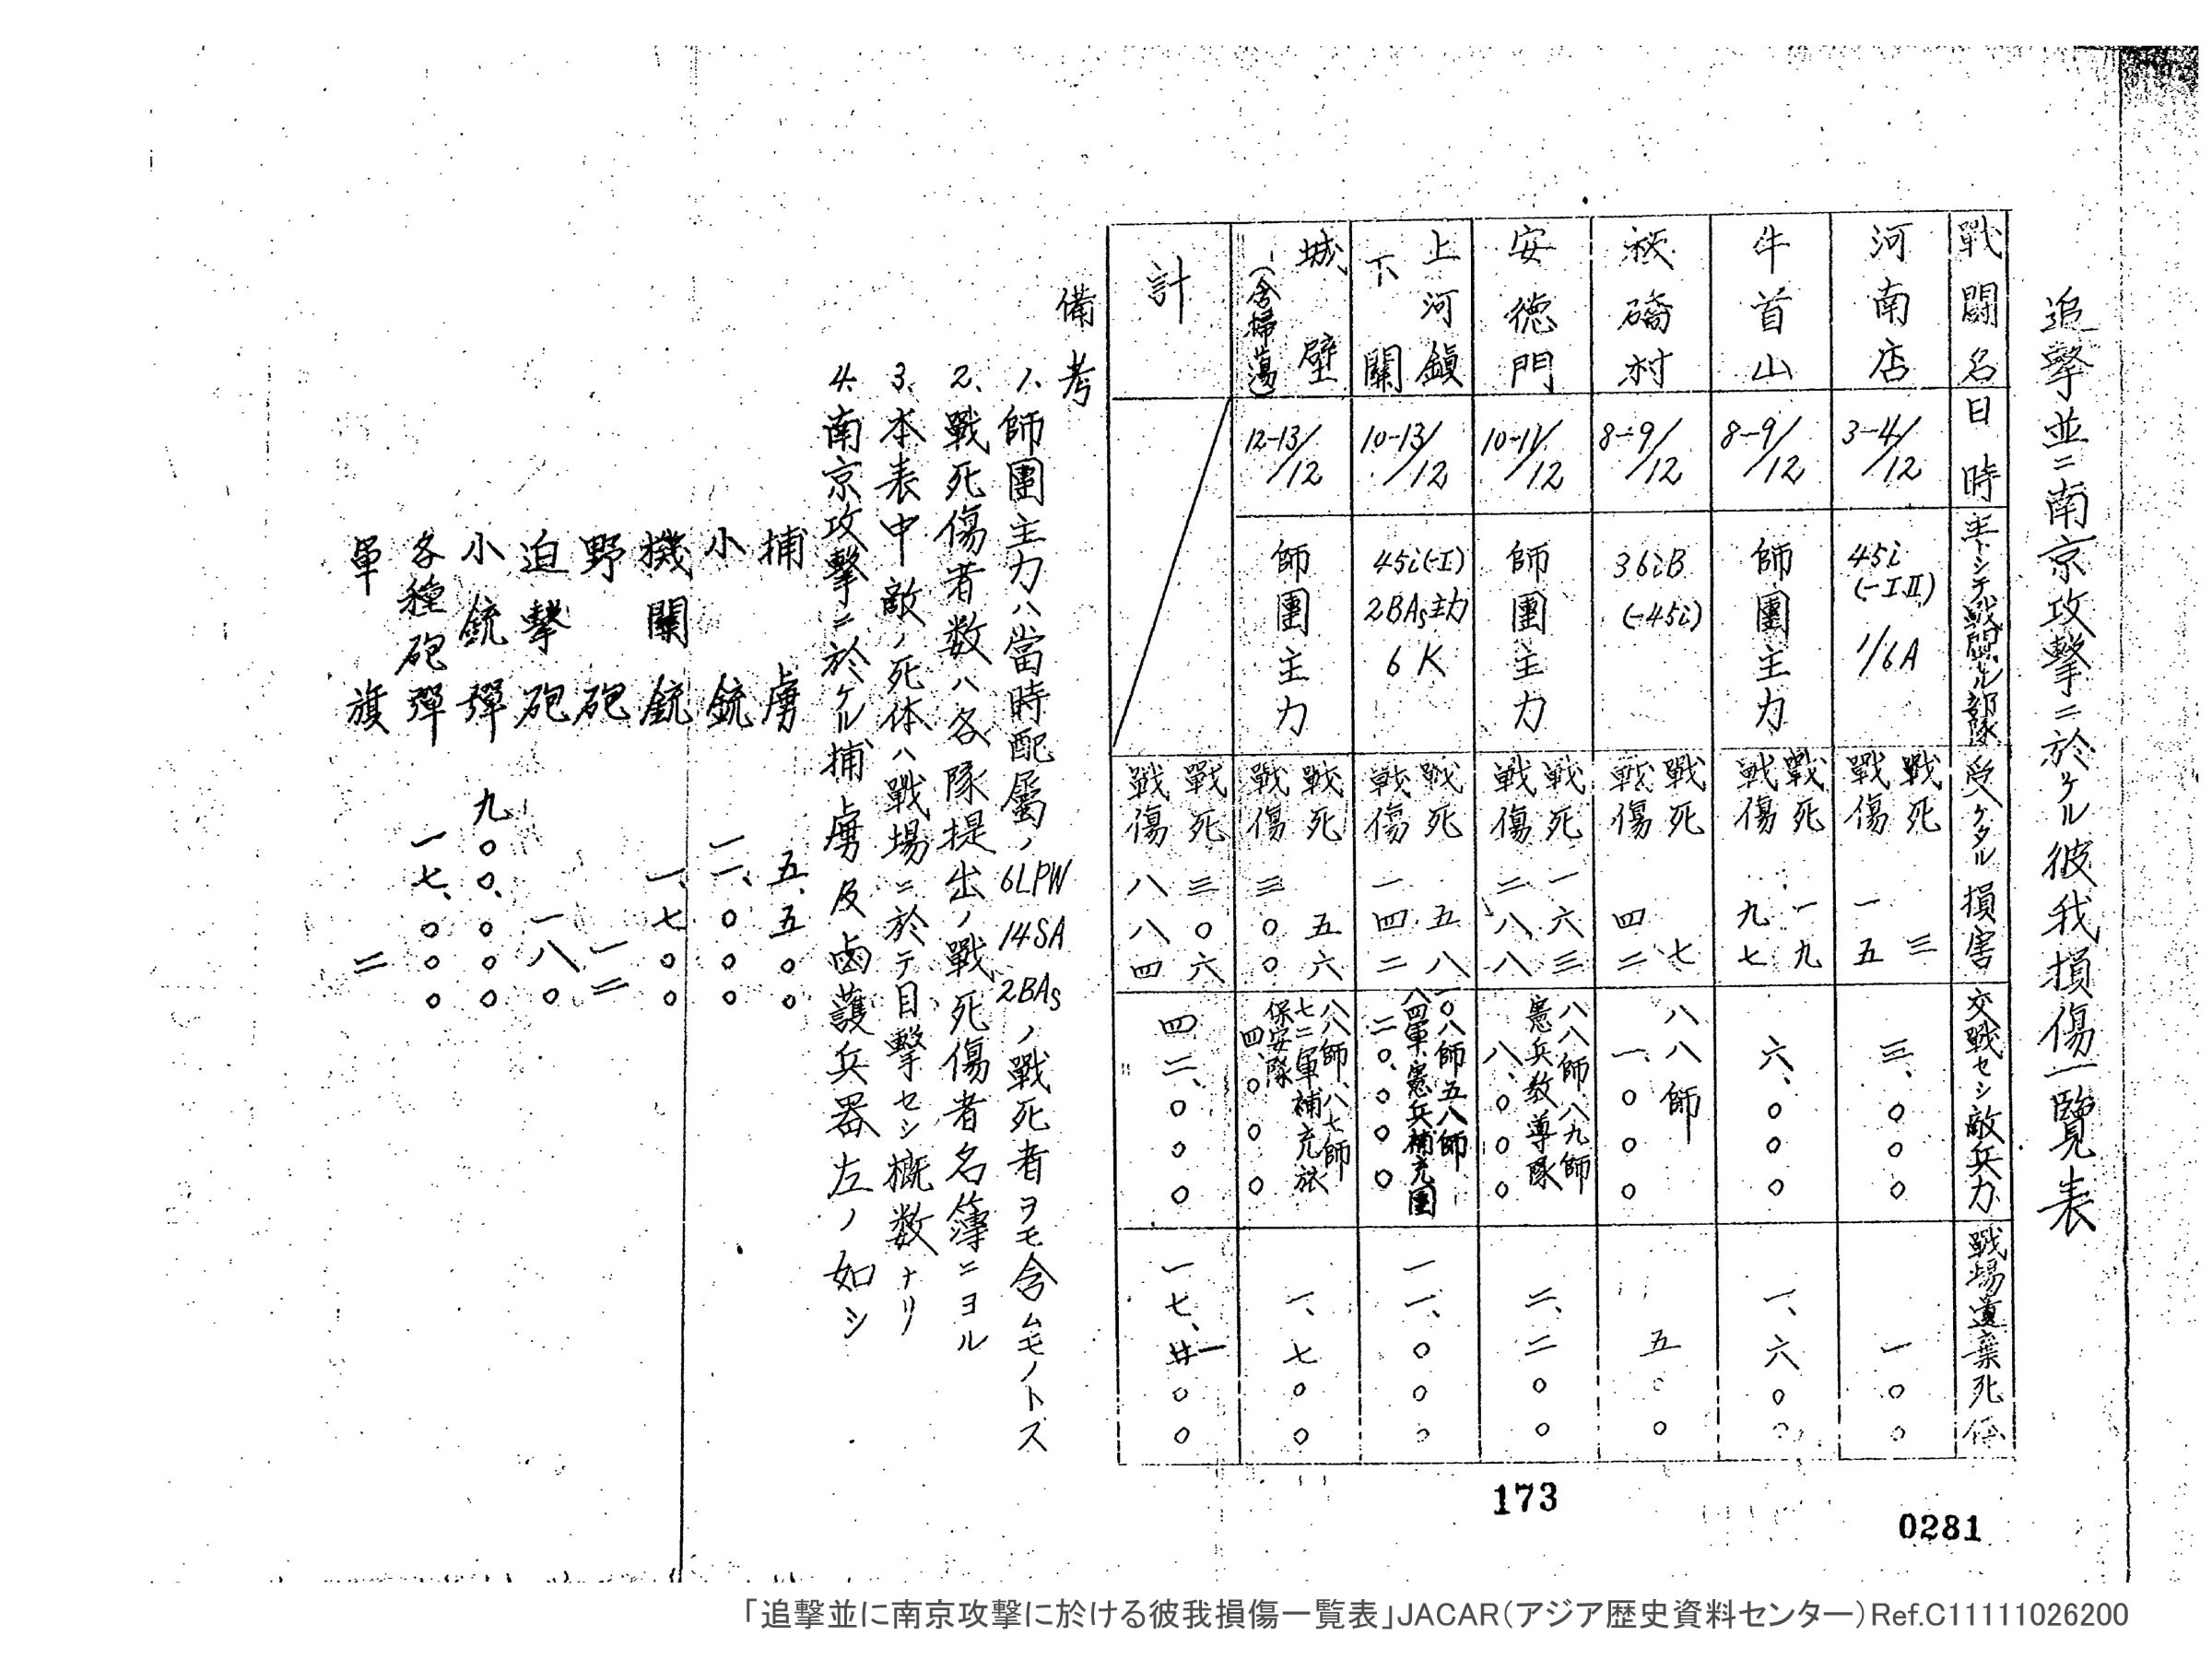 追撃並ニ南京攻撃ニ於ケル彼我損傷一覽表
戰闘名 日時 主トシテ戦闘セル部隊 受ケタル損害 交戦セシ敵兵力 戰場遺棄死体
河南店 3-4/12 45i(-IⅡ) 1/6A 戰死 三 戰傷 一五 三、〇〇〇 一〇〇
牛首山 8-9/12 師團主力 戰死 一九 戰傷 九七 六、〇〇〇 一、六〇〇
8-9/12 36iB(-45i) 戰死 七 戰傷 四二 八八師 一、〇〇〇 五〇〇
安徳門 10-11/12 師團主力 戰死 一六三 戰傷 二八八 八八師、八九師 憲兵教導隊 八、〇〇〇 二、二〇〇
上河鎭 下關 10-13/12 45i(-I) 2BAs主力 6K 戰死 五八 戰傷 一四二 一〇八師五八師 八四軍、憲兵補充團 二〇、〇〇〇 一一、〇〇〇
城壁(含掃蕩) 12-13/12 師團主力 戰死 五六 戰傷 三〇〇 八八師、八七師 七二軍補充旅 保安隊 四、〇〇〇 一、七〇〇
計 戰死 三〇六 戰傷 八八四 四二、〇〇〇 一七、一〇〇
備考
1、師團主力ハ當時配屬ノ6LPW 14SA 2BAsノ戰死者ヲモ含ムモノトス
2、戰死傷者数ハ各隊提出ノ戰死傷者名簿ニヨル
3、本表中敵ノ死体ハ戰場ニ於テ目擊セシ概数ナリ
4、南京攻撃ニ於ケル捕虜及鹵護兵器左ノ如シ
捕虜 五、五〇〇
小銃 一一、〇〇〇
機關銃 一、七〇〇
野砲 一二
迫擊砲 一八〇
小銃彈 九〇〇、〇〇〇
各種砲彈 一七、〇〇〇
軍旗 二
173
0281
「追撃並に南京攻撃に於ける彼我損傷一覧表」JACAR（アジア歴史資料センター）Ref.C11111026200